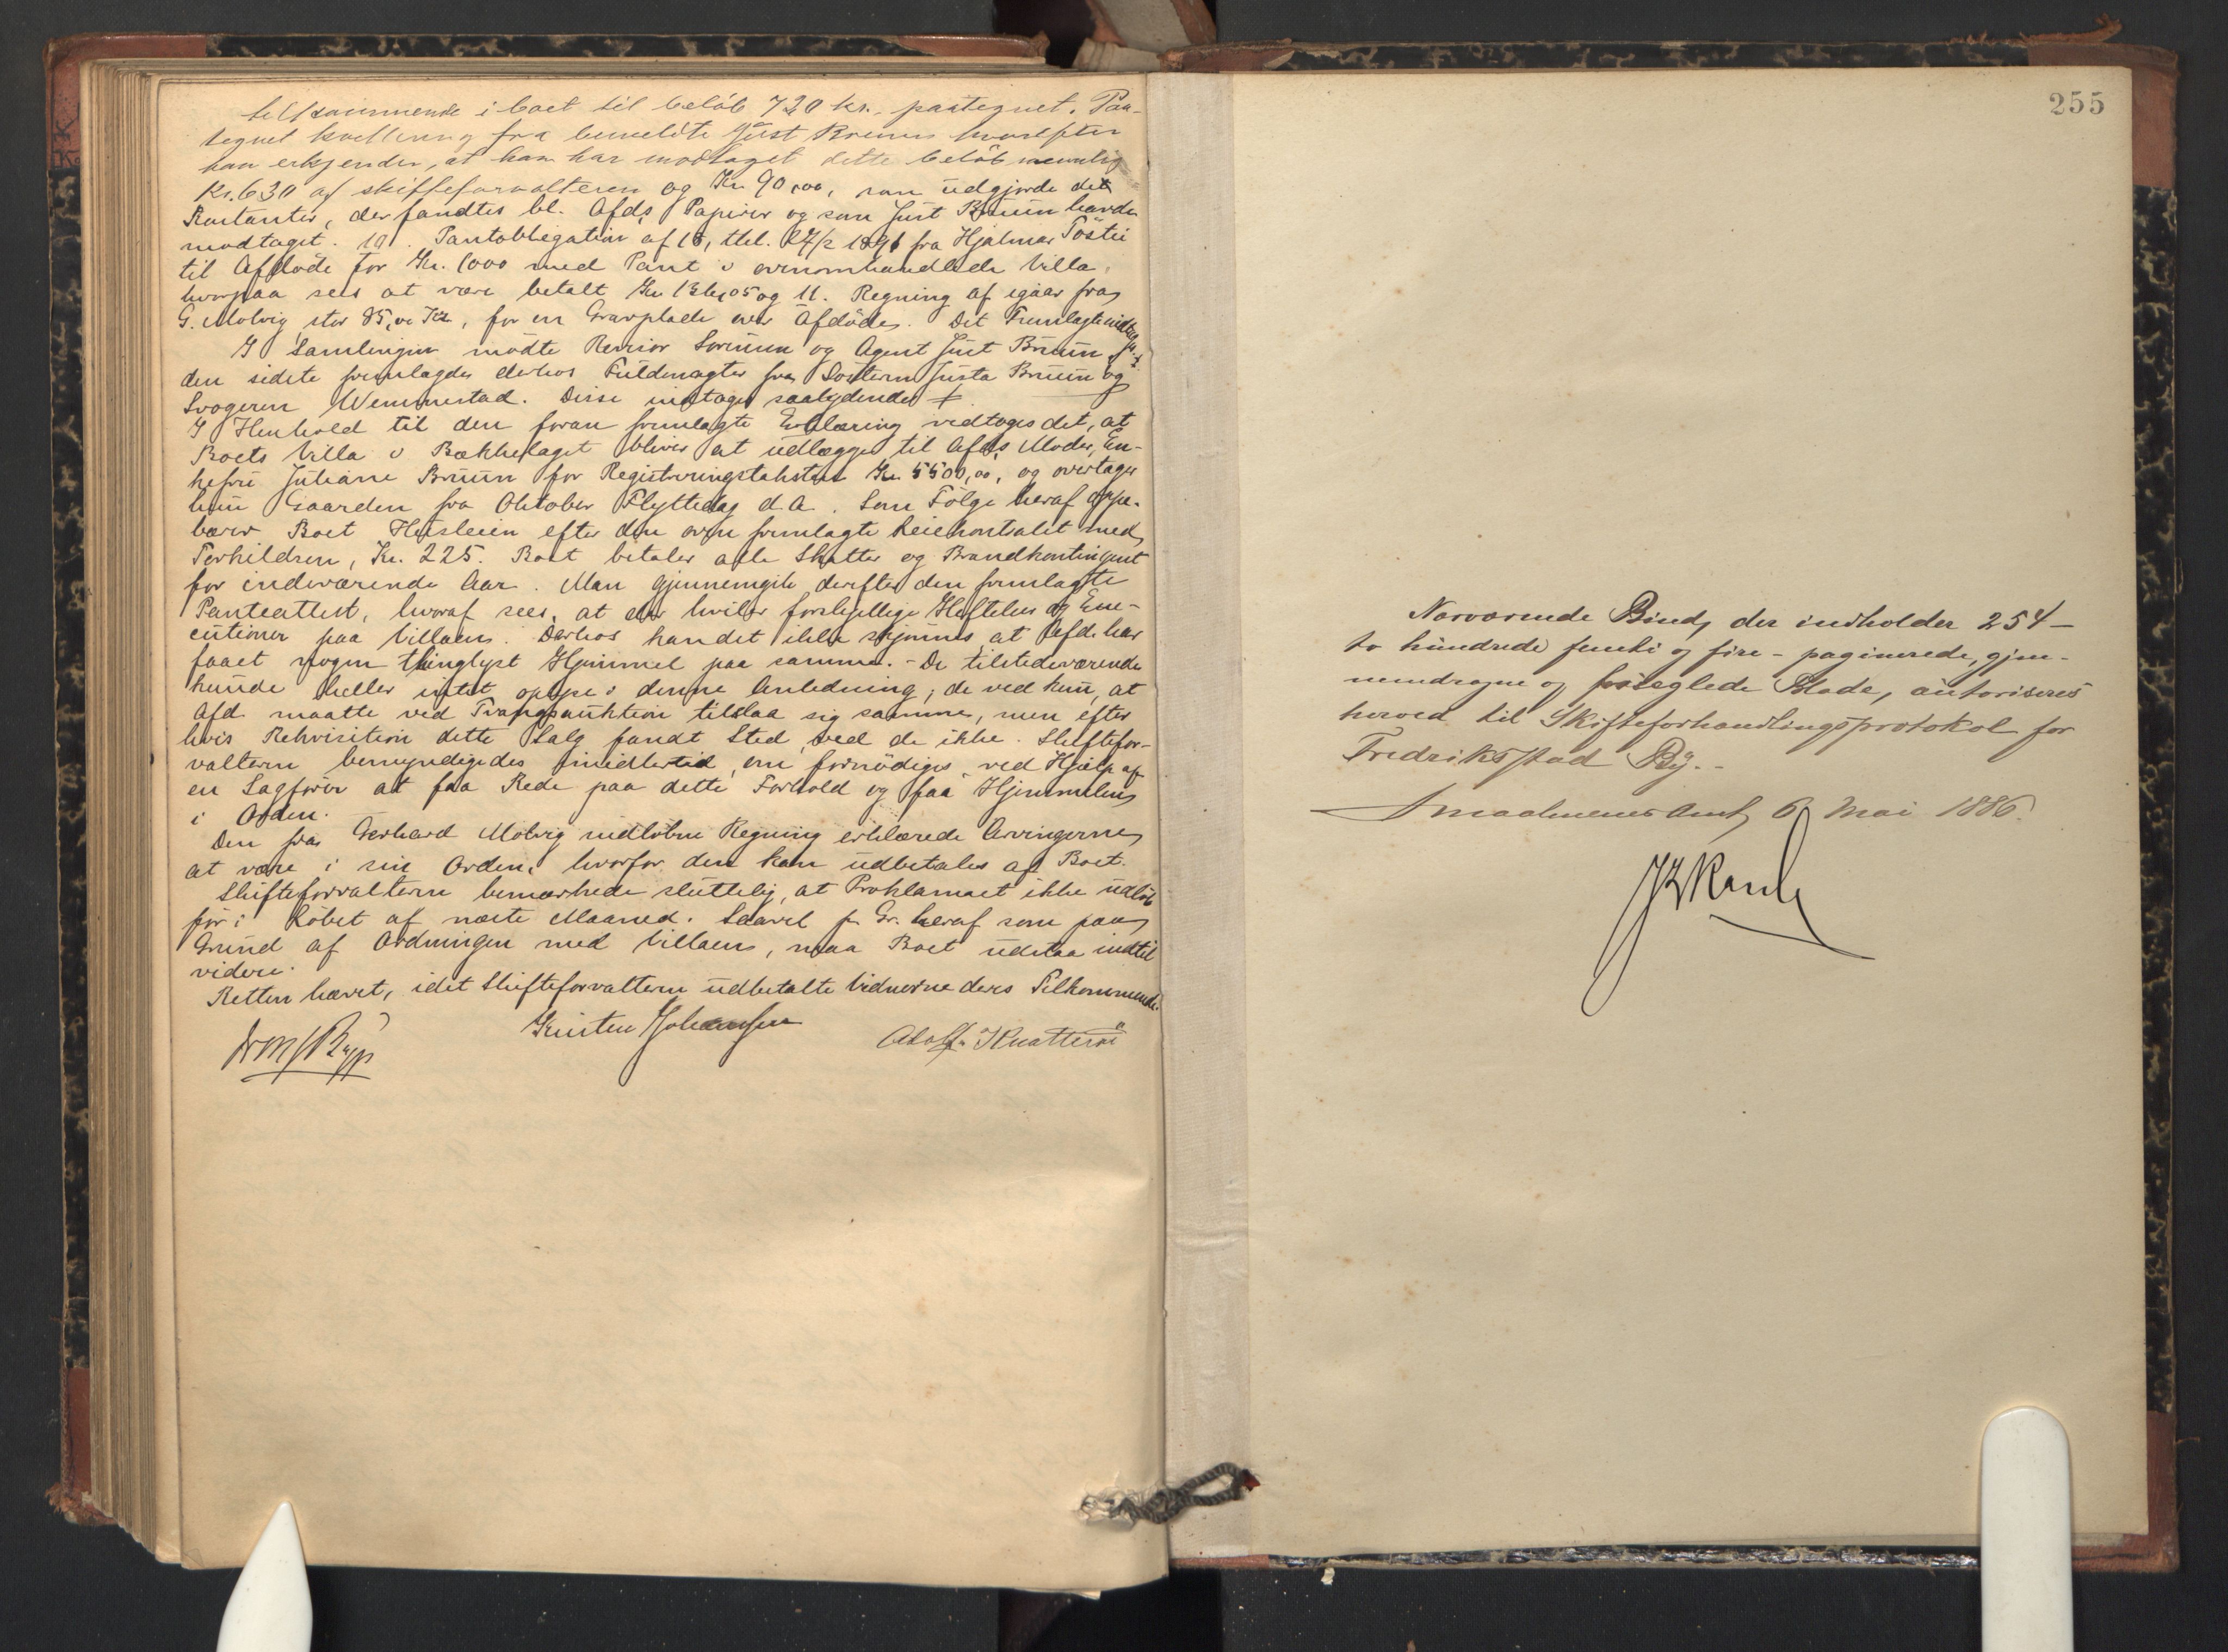 tilkommende i boet til beløb 720 kr. paategnet. Paa-
tegnet kvittering fra bemeldte Just Bruun hvorefter
han erkjender, at han har modtaget dette beløb nemlig
Kr. 630 af skifteforvalteren og Kr 90,00, som udgjorde det
Kontanter, der fandtes bl. Afds Papirer og som Just Bruun havde
modtaget. 10. Pantobligation af 15, thl. 27/2 1891 fra Hjalmar
til Afdøde for Kr. 1000 med Pant i ovenomhandlede Villa,
hvorpaa sees at være betalt Kr og 11. Regning af igaar fra
G. Molvig stor 85,00 Kr, for en Gravplade over Afdøde. Det Fremlagte
I Samlingen mødte Revisor Sørensen og Agent Just Bruun,
den sidste fremlagde derhos Fuldmagter fra Søsteren Justa Bruun og
Svogeren Wennerstad. Disse indtages saalydende +
I Henhold til den foran fremlagte Erklæring vedtoges det, at
Boets Villa i Bækkelaget bliver at udlægge til Afds Moder, En-
kefru Juliane Bruun for Registreringstaksten Kr. 5500,00, og overtager
hun Gaarden fra Oktober Flyttedag d.A. Som Følge heraf oppe-
bærer Boet Husleien efter den oven fremlagte Leiekontrakt med
Torkildsen, Kr. 225. Boet betaler alle Skatter og Brandkontingent
for indeværende Aar. Man gjennemgik derefter den fremlagte
Panteattest, hvoraf sees, at der hviler forskjellige Heftelser og Exe-
cutioner paa Villaen. Derhos kan det ikke skjønnes at Afd. har
faaet nogen thinglyst Hjemmel paa samme. - De tilstedeværende
kunde heller intet oplyse i denne Anledning; de ved kun, at
Afd. maatte ved Tvangsauktion tilslaa sig samme, men efter
hvis Rekvisition dette Salg fandt Sted, ved de ikke. Skiftefor-
valteren bemyndigedes imidlertid, om fornødiges ved Hjælp af
en Sagfører at faa Rede paa dette Forhold og faa Hjemmelen
i Orden.
Den fra Gerhard Molvig indløbne Regning erklærede Arvingerne
at være i sin Orden, hvorfor den kan udbetales af Boet.
Skifteforvalteren bemærkede sluttelig, at Proklamaet ikke udløb
før i Løbet af næste Maaned. Saavel p. Gr. heraf som paa
Grund af Ordningen med Villaen, maa Boet udstaa indtil
videre.
Retten hævet, idet Skifteforvalteren udbetalte Vidnerne deres Tilkommende.
Kristen Johansen Adolf Knatterø
255
Nærværende Bind, der indholder 254 -
to hundrede femti og fire - paginerede, gjen-
nemdragne og forseglede Blade, autoriseres
herved til Skifteforhandlingsprotokol for
Fredriksstad By. -
Smaalenenes Amt, 6 Mai 1886.